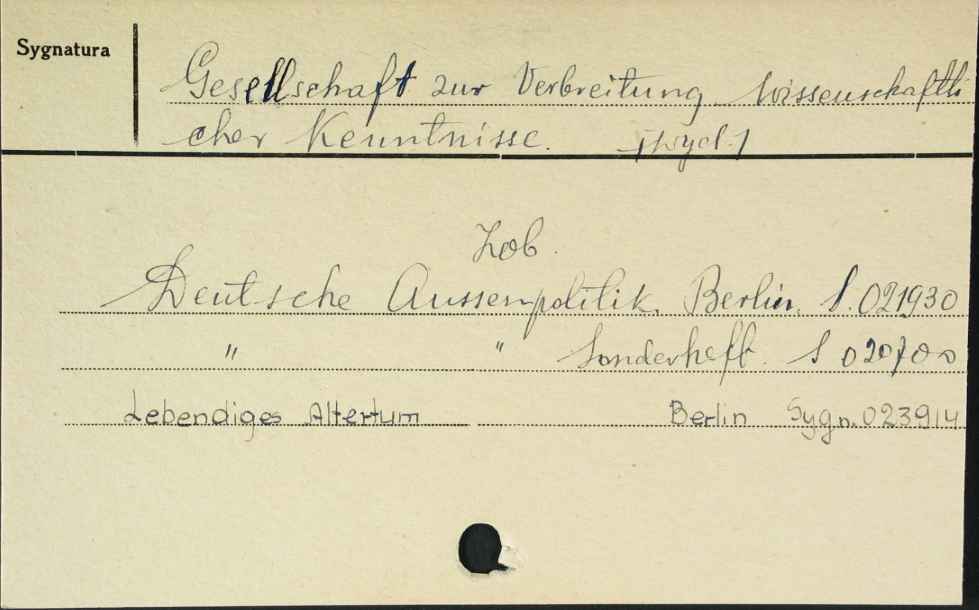 Sygnatura
Gesellschaft zur Verbreitung wissenschaftli
cher Kenntnisse. [wyd.]
Zob.
Deutsche Aussenpolitik. Berlin. S. 021930
" " Sonderheft. S 020700
Lebendiges Altertum Berlin Sygn. 023914